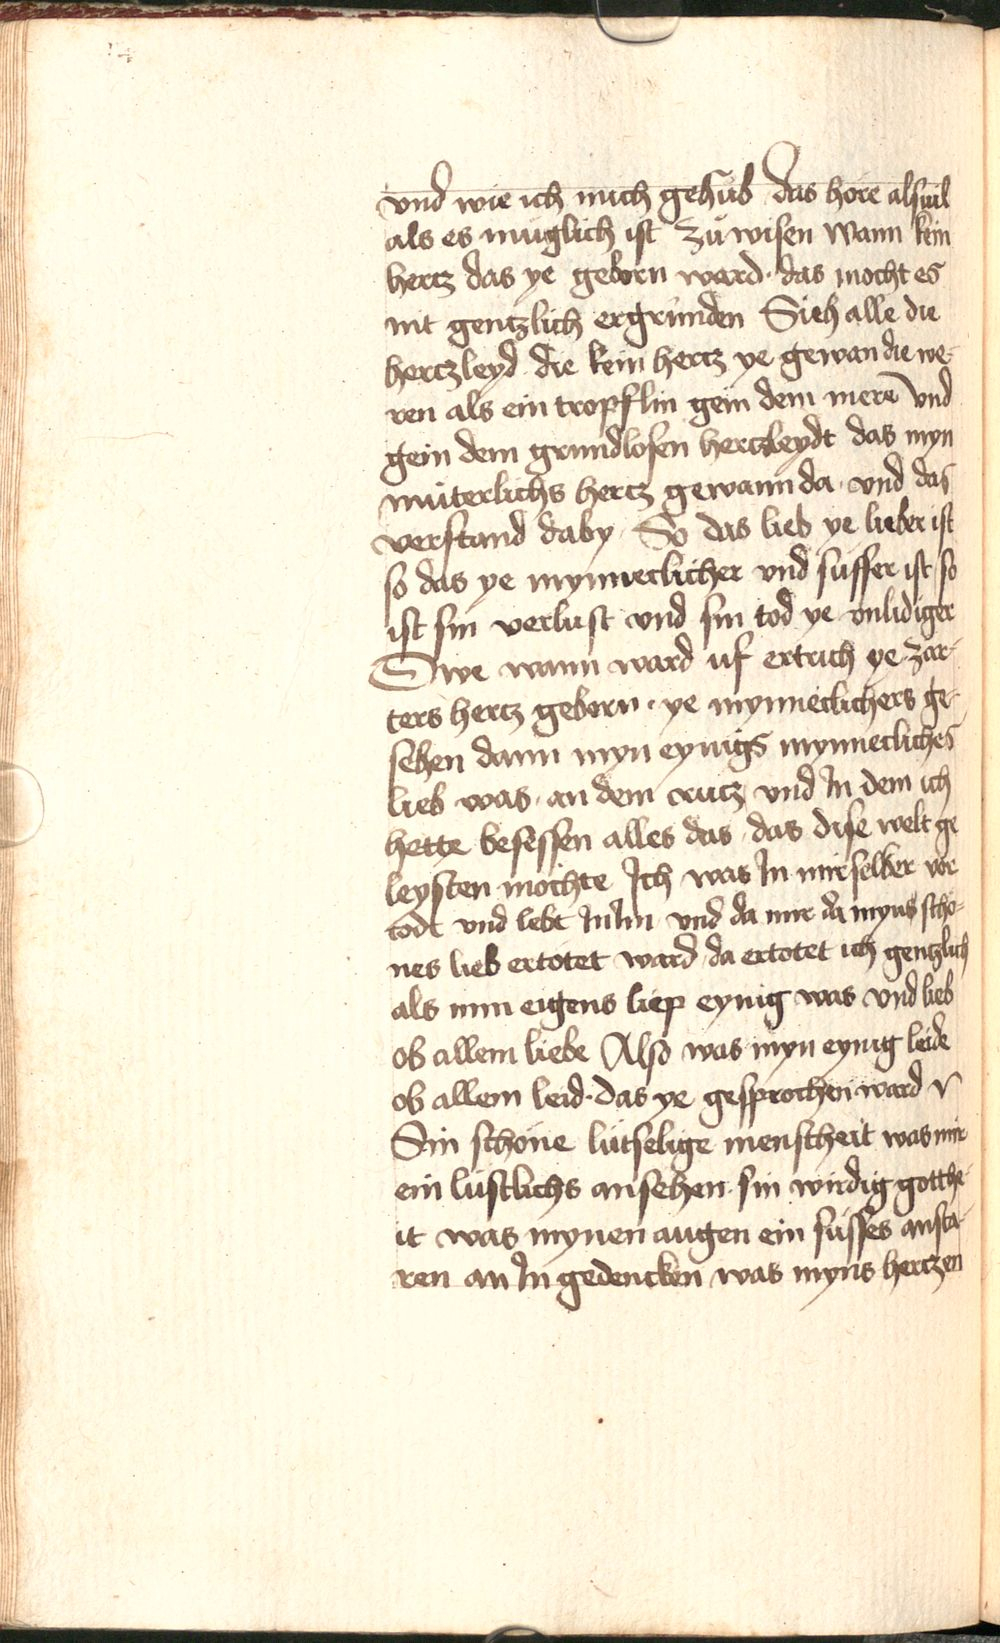 vnd wie ich mich gehub das hore alsuil
als es muglich ist zu wisen Wann kein
hertz das ye geborn ward · das mocht es
nit gentzlich ergrunden Sieh alle die
hertzleyd die kein hertz ye gewan die we-
ren als ein tropflin gein dem mere vnd
gein dem grundlosen hertzleydt das myn
muterlichs hertz gewann da · vnd das
verstand daby · So das lieb ye lieber ist
so das ye mynneclicher vnd susser ist so
ist sin verlust vnd sin tod ye vnlidiger
Owe wann ward uf ertrich ye zar-
ters hertz geborn · ye mynneclichers ge-
sehen dann myn eynigs mynnecliches
lieb was · an dem crutz vnd In dem ich
hette besessen alles das · das dise welt ge
leysten mochte Ich was In mir selber vor
todt vnd lebt In Im vnd da mir da myns scho-
nes lieb ertotet ward da ertotet ich gentzlich
als min eigens liep eynig was vnd lieb
ob allem liebe Also was myn eynig leide
ob allem leid · das ye gesprochen ward
Sin schone lutselige menscheit was mir
ein lustlichs ansehen · sin wirdig gotthe-
it was mynen augen ein susses ansta-
ren an In gedencken was myns hertzen